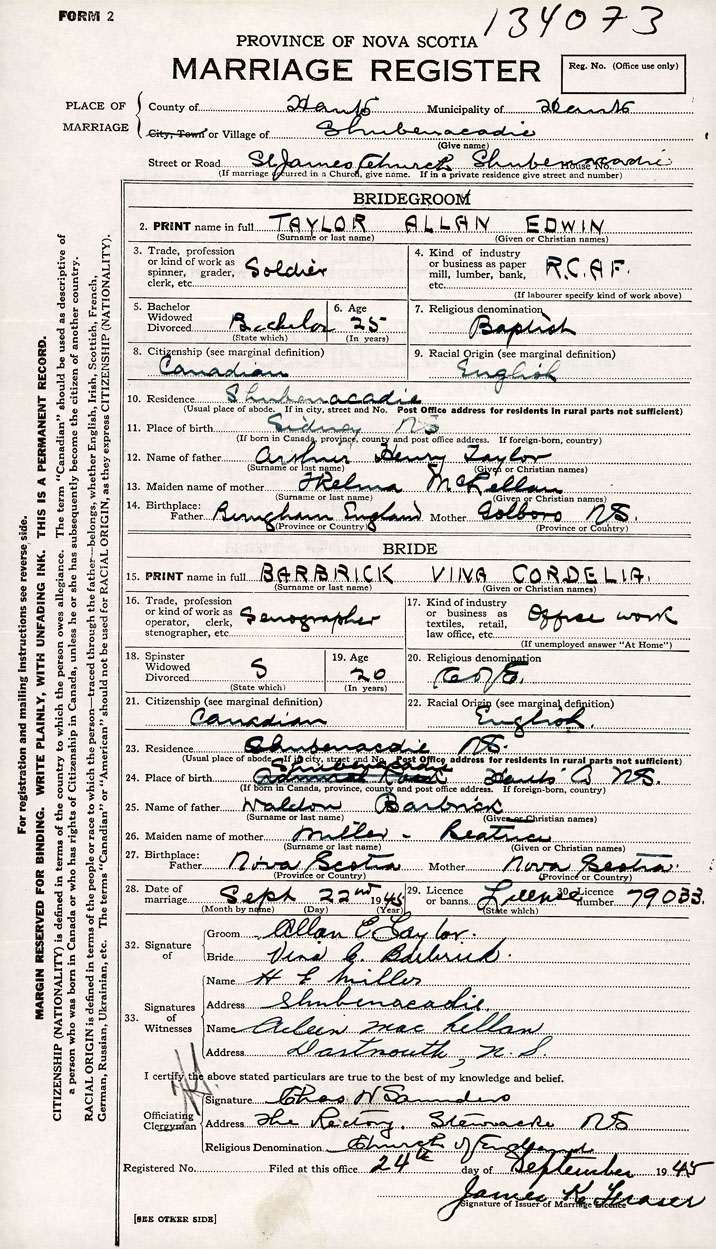 FORM 2
134073
PROVINCE OF NOVA SCOTIA
MARRIAGE REGISTER
Reg. No. (Office use only)
PLACE OF MARRIAGE
County of Hants Municipality of Hants
City, Town or Village of Shubenacadie
(Give name)
Street or Road St James Church Shubenacadie House No.
(If marriage occurred in a Church, give name. If in a private residence give street and number)
BRIDEGROOM
2. PRINT name in full TAYLOR ALLAN EDWIN
(Surname or last name) (Given or Christian names)
3. Trade, profession or kind of work as spinner, grader, clerk, etc. Soldier
4. Kind of industry or business as paper mill, lumber, bank, etc. R.C.A.F.
(If labourer specify kind of work above)
5. Bachelor Widowed Divorced Bachelor
(State which)
6. Age 25
(In years)
7. Religious denomination Baptist
8. Citizenship (see marginal definition) Canadian
9. Racial Origin (see marginal definition) English
10. Residence Shubenacadie
(Usual place of abode. If in city, street and No. Post Office address for residents in rural parts not sufficient)
11. Place of birth Sidney NS
(If born in Canada, province, county and post office address. If foreign-born, country)
12. Name of father Arthur Henry Taylor
(Surname or last name) (Given or Christian names)
13. Maiden name of mother Thelma McLellan
(Surname or last name) (Given or Christian names)
14. Birthplace: Father England Mother NS.
(Province or Country) (Province or Country)
BRIDE
15. PRINT name in full BARBRICK VINA CORDELIA.
(Surname or last name) (Given or Christian names)
16. Trade, profession or kind of work as operator, clerk, stenographer, etc. Senographer
17. Kind of industry or business as textiles, retail, law office, etc. Office work
(If unemployed answer "At Home")
18. Spinster Widowed Divorced S
(State which)
19. Age 20
(In years)
20. Religious denomination C of E.
21. Citizenship (see marginal definition) Canadian
22. Racial Origin (see marginal definition) English.
23. Residence Shubenacadie NS.
(Usual place of abode. If in city, street and No. Post Office address for residents in rural parts not sufficient)
Shubenacadie
24. Place of birth Hants Co NS.
(If born in Canada, province, county and post office address. If foreign-born, country)
25. Name of father Waldon Barbrick
(Surname or last name) (Given or Christian names)
26. Maiden name of mother Miller - Beatrice
(Surname or last name) (Given or Christian names)
27. Birthplace: Father Nova Scotia Mother Nova Scotia.
(Province or Country) (Province or Country)
28. Date of marriage Sept 22nd 1945
(Month by name) (Day) (Year)
29. Licence or banns License
(State which)
30. Licence number 79033.
32. Signature of
Groom Allan E Taylor.
Bride Vina C. Barbrick.
33. Signatures of Witnesses
Name H E Miller
Address Shubenacadie
Name Aileen Mac Lellan
Address Dartmouth, N.S.
I certify the above stated particulars are true to the best of my knowledge and belief.
Officiating Clergyman
Signature Chas W Saunders
Address The Rectory, Stewiacke NS
Religious Denomination Church of England
Registered No. Filed at this office 24th day of September 1945
James K. Fraser
Signature of Issuer of Marriage Licence
[SEE OTHER SIDE]
For registration and mailing instructions see reverse side.
MARGIN RESERVED FOR BINDING. WRITE PLAINLY, WITH UNFADING INK. THIS IS A PERMANENT RECORD.
CITIZENSHIP (NATIONALITY) is defined in terms of the country to which the person owes allegiance. The term "Canadian" should be used as descriptive of
a person who was born in Canada or who has rights of Citizenship in Canada, unless he or she has subsequently become the citizen of another country.
RACIAL ORIGIN is defined in terms of the people or race to which the person—traced through the father—belongs, whether English, Irish, Scottish, French,
German, Russian, Ukrainian, etc. The terms "Canadian" or "American" should not be used for RACIAL ORIGIN, as they express CITIZENSHIP (NATIONALITY).